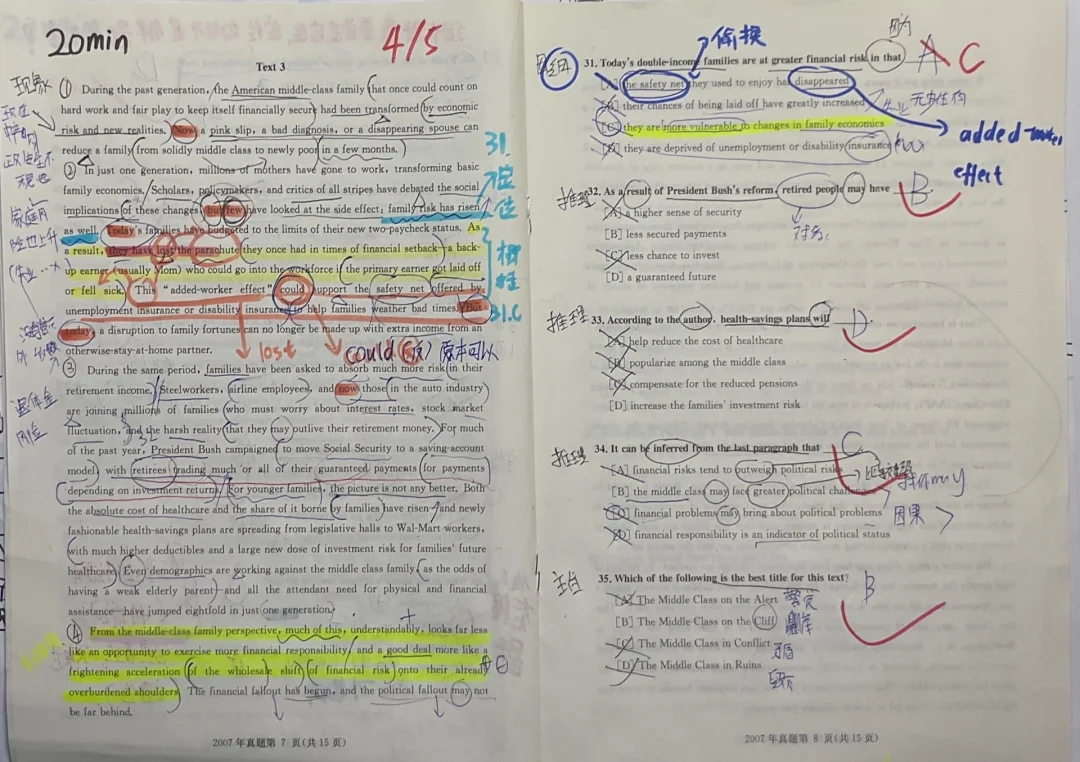 20min
4/5
Text 3
现象
① During the past generation, the American middle-class family that once could count on
hard work and fair play to keep itself financially secure had been transformed by economic
risk and new realities. Now a pink slip, a bad diagnosis, or a disappearing spouse can
reduce a family from solidly middle class to newly poor in a few months.
② In just one generation, millions of mothers have gone to work, transforming basic
family economics. Scholars, policymakers, and critics of all stripes have debated the social
implications of these changes, but few have looked at the side effect: family risk has risen
as well. Today's families have budgeted to the limits of their new two-paycheck status. As
a result, they have lost the parachute they once had in times of financial setback—a back-
up earner (usually Mom) who could go into the workforce if the primary earner got laid off
or fell sick. This "added-worker effect" could support the safety net offered by
unemployment insurance or disability insurance to help families weather bad times. But
today, a disruption to family fortunes can no longer be made up with extra income from an
otherwise-stay-at-home partner.
31.
定
位
31.C
lost
could
原本可以
③ During the same period, families have been asked to absorb much more risk in their
retirement income. Steelworkers, airline employees, and now those in the auto industry
are joining millions of families who must worry about interest rates, stock market
fluctuation, and the harsh reality that they may outlive their retirement money. For much
of the past year, President Bush campaigned to move Social Security to a saving-account
model, with retirees trading much or all of their guaranteed payments for payments
depending on investment returns. For younger families, the picture is not any better. Both
the absolute cost of healthcare and the share of it borne by families have risen—and newly
fashionable health-savings plans are spreading from legislative halls to Wal-Mart workers,
with much higher deductibles and a large new dose of investment risk for families' future
healthcare. Even demographics are working against the middle class family, as the odds of
having a weak elderly parent—and all the attendant need for physical and financial
assistance—have jumped eightfold in just one generation.
退休金
风险
④ From the middle-class family perspective, much of this, understandably, looks far less
like an opportunity to exercise more financial responsibility, and a good deal more like a
frightening acceleration of the wholesale shift of financial risk onto their already
overburdened shoulders. The financial fallout has begun, and the political fallout may not
be far behind.
2007 年真题第 7 页(共 15 页)
偷换
因为
A C
31. Today's double-income families are at greater financial risk in that
[A] the safety net they used to enjoy has disappeared
[B] their chances of being laid off have greatly increased
[C] they are more vulnerable to changes in family economics
[D] they are deprived of unemployment or disability insurance
added-worker
effect
推理
32. As a result of President Bush's reform, retired people may have
B
[A] a higher sense of security
[B] less secured payments
[C] less chance to invest
[D] a guaranteed future
推理
33. According to the author, health-savings plans will
D
[A] help reduce the cost of healthcare
[B] popularize among the middle class
[C] compensate for the reduced pensions
[D] increase the families' investment risk
推理
34. It can be inferred from the last paragraph that
C
[A] financial risks tend to outweigh political risks
[B] the middle class may face greater political challenges
[C] financial problems may bring about political problems
因果
[D] financial responsibility is an indicator of political status
主旨
35. Which of the following is the best title for this text?
B
[A] The Middle Class on the Alert
[B] The Middle Class on the Cliff
悬崖
[C] The Middle Class in Conflict
矛盾
[D] The Middle Class in Ruins
2007 年真题第 8 页(共 15 页)